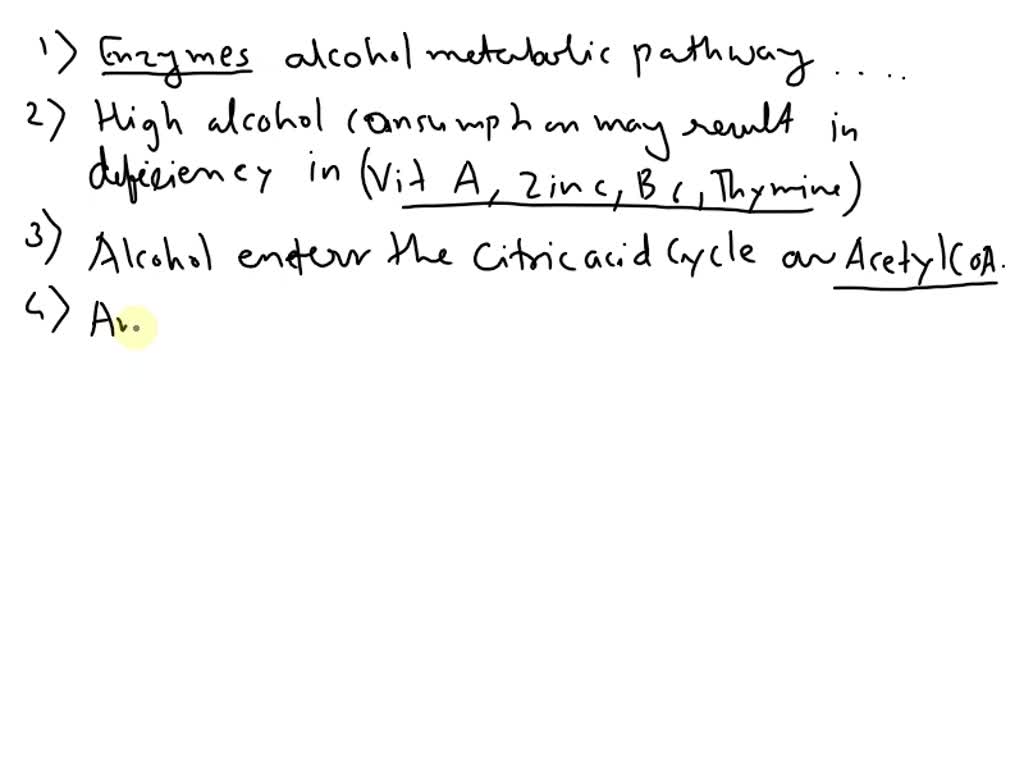 1) Enzymes alcohol metabolic pathway ....
2) High alcohol consumphon may result in
deficiency in (Vit A, Zinc, Bc, Thymine)
3) Alcohol enters the Citric acid Cycle as AcetylCoA.
4) Av